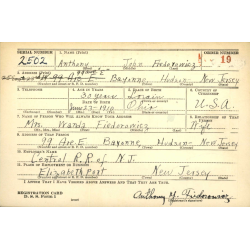 SERIAL NUMBER 1. NAME (Print) ORDER NUMBER
2502 Anthony John Fiedorowicz 19
2. ADDRESS (Print)
99 Ave E Bayonne Hudson New Jersey
3. TELEPHONE 4. AGE IN YEARS 5. PLACE OF BIRTH 6. COUNTRY OF CITIZENSHIP
30 years Lorain
DATE OF BIRTH
1910 Ohio U.S.A.
7. NAME OF PERSON WHO WILL ALWAYS KNOW YOUR ADDRESS 8. RELATIONSHIP OF THAT PERSON
Mrs. Wanda Fiedorowicz Wife
9. ADDRESS OF THAT PERSON
99 Ave E Bayonne Hudson New Jersey
10. EMPLOYER'S NAME
Central R.R. of N.J.
11. PLACE OF EMPLOYMENT OR BUSINESS
Elizabeth Port New Jersey
I AFFIRM THAT I HAVE VERIFIED ABOVE ANSWERS AND THAT THEY ARE TRUE.
REGISTRATION CARD
D. S. S. Form 1 Anthony J. Fiedorowicz